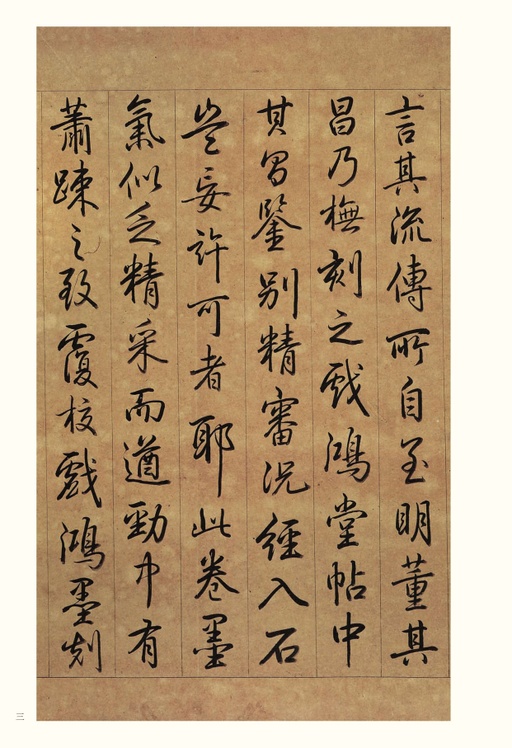 言其流傳所自至明董其
昌乃橅刻之戲鴻堂帖中
其昌鑒別精審況經入石
豈妄許可者耶此卷墨
氣似乏精采而遒勁中有
蕭疎之致覆校戲鴻墨刻
三